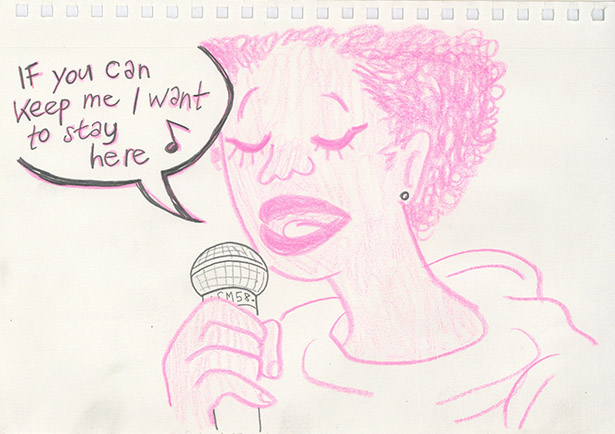 IF you can
keep me I want
to stay
here
SM58.